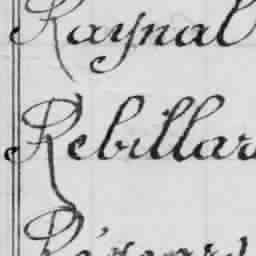 Raynal
Rebillar